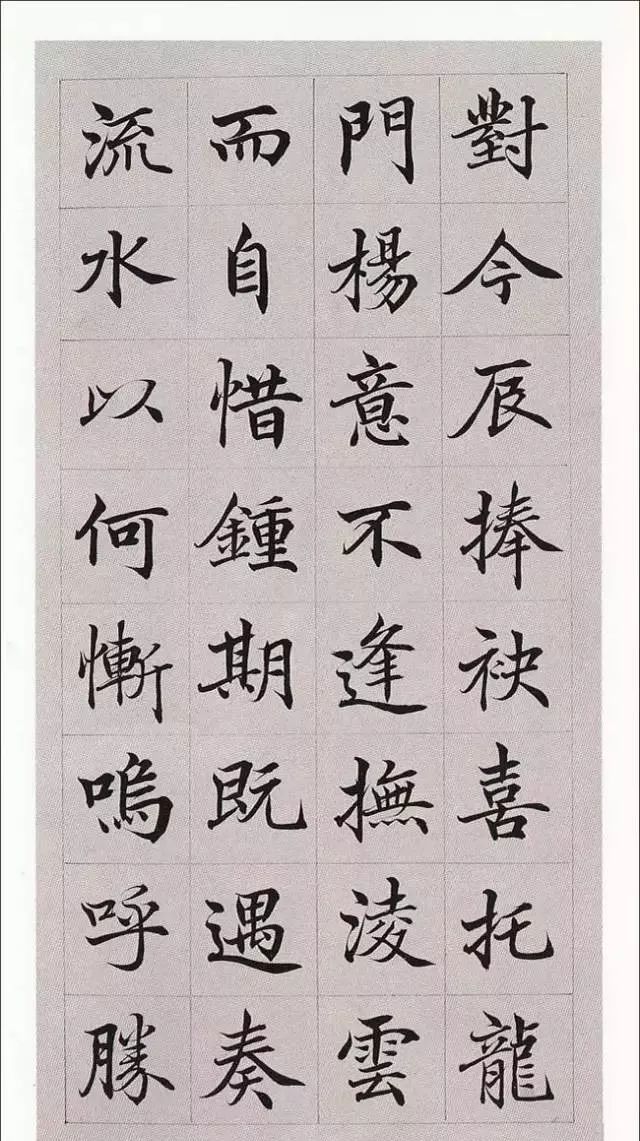 對今辰捧袂喜托龍
門楊意不逢撫淩雲
而自惜鍾期既遇奏
流水以何慚嗚呼勝